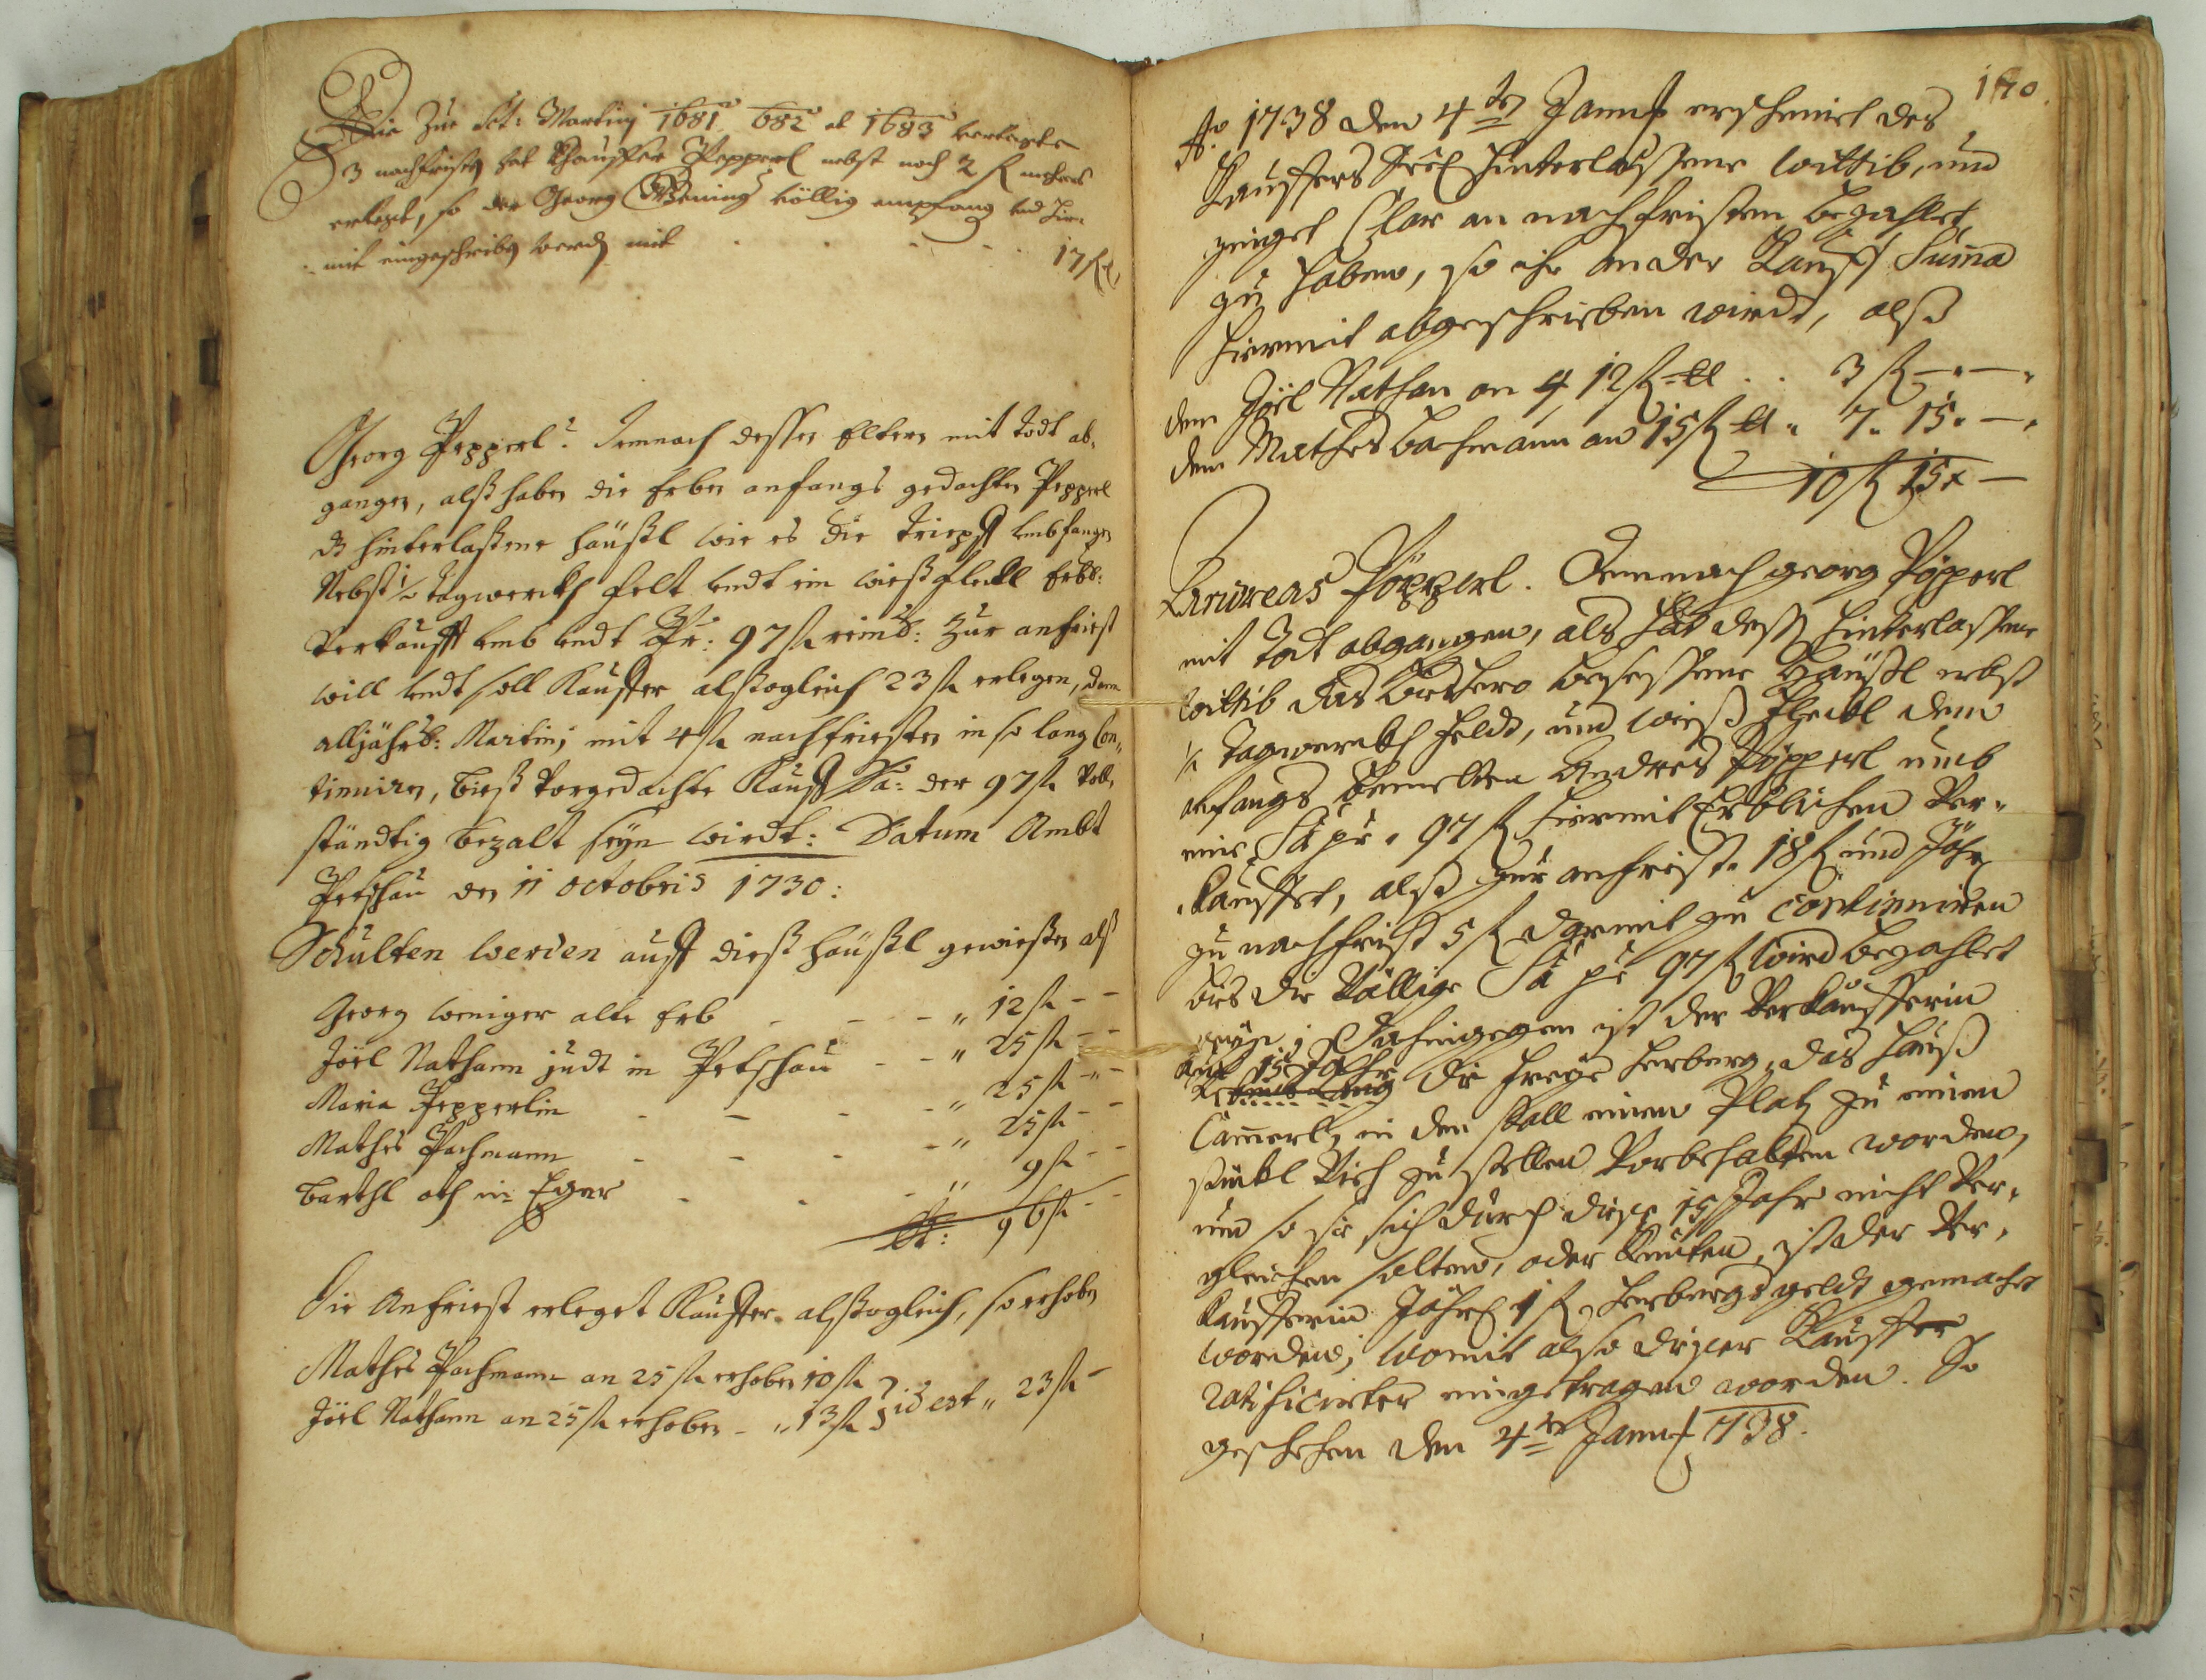 Die Zue Sct: Martinj 1681 682 et 1683 verleste
3 nachfristen hat Khauffer Pepperl nebst noch 2 fl mehres
erlegt, so der Georg Wening völlig empfang und hie-
mit eingeschriben werden mit . . . . . 17 fl
Georg Pepperl: Demnach dessen Eltern mit todt ab-
gangen, alß haben die Erben anfangs gedachten Pepperl
ds hinterlaßene häußl wie es die umbfangen
Nebst ½ tagwerckh felt undt ein wießfleckl Erbl:
Verkaufft umb undt Pr: 97 fl reinis: Zur anfriest
will undt soll Kauffer alßogleich 23 fl erlegen, dann
alljährl: Martinj mit 4 fl nachfriesten in so lang Con-
tinuiren, bieß vorgedachte Kauff Sa: der 97 fl vol-
ständtig bezalt seyn wirdt: Datum Ambt
Petschau den 11 octobris 1730:
Schulten werden auff dieß häußl gewießen alß
Georg weniger alte Erb - - - „ 12 fl - -
Joel Nathann judt in Petschau - - „ 25 fl - -
Maria Pepperlin - - - - „ 25 fl - -
Mathes Pachmann - - - - „ 25 fl - -
Barthl oth in Eger - - - „ 9 fl - -
Lt: 96 fl - -
Die Anfriest erleget Kauffer alßogleich, so erhoben
Mathes Pachmann an 25 fl erhoben 10 fl
Joel Nathann an 25 fl erhoben - „ 13 fl } id est „ 23 fl -
170.
Ao. 1738 den 4ten Januar erscheinet des
Kauffers Seel hinterlaßene wittib, und
zeiget Clar an nachfristen bezahlet
zu haben, so ihr an der Kauff Suma
hiermit abgeschrieben wirdt, alß
dem Joel Nathan an 12 fl . . 3 fl - . - .
dem Mathes Bachmann an 15 fl „ 7. 15. - .
10 fl 15 x -
Andreas Pöpperl. Demnach georg Pöpperl
mit Todt abgangen, als hat deß hinterlaßene
wittib das bishero beseßene Häußl nebst
½ Tagwerckh feldt, und wieß fleckl dem
anfangs bemelten Andres Pöpperl umb
eine Sa pr. 97 fl hiermit Erblichen Ver-
kauffet, alß zur anfrist 18 fl und Jährl
zu nachfrist 5 fl darmit zu continuiren
bis die Völlige Sa pr 97 fl wird bezahlet
seyn; Dahingegen ist der Verkaufferin
auf 15 Jahr
die freye herberg, das hauß
Cammerl, in den stall einen Platz zu einen
stückl Vieh zu stellen Vorbehalten worden,
und so sie sich durch diese 15 Jahr nicht Ver-
gleichen solten, oder könten, ist der Ver-
kaufferin Jährl 1 fl herbergs geldt gemacht
worden, womit also dieser Kauff
ratificirter eingetragen worden. So
geschehen den 4ten Januar 1738.